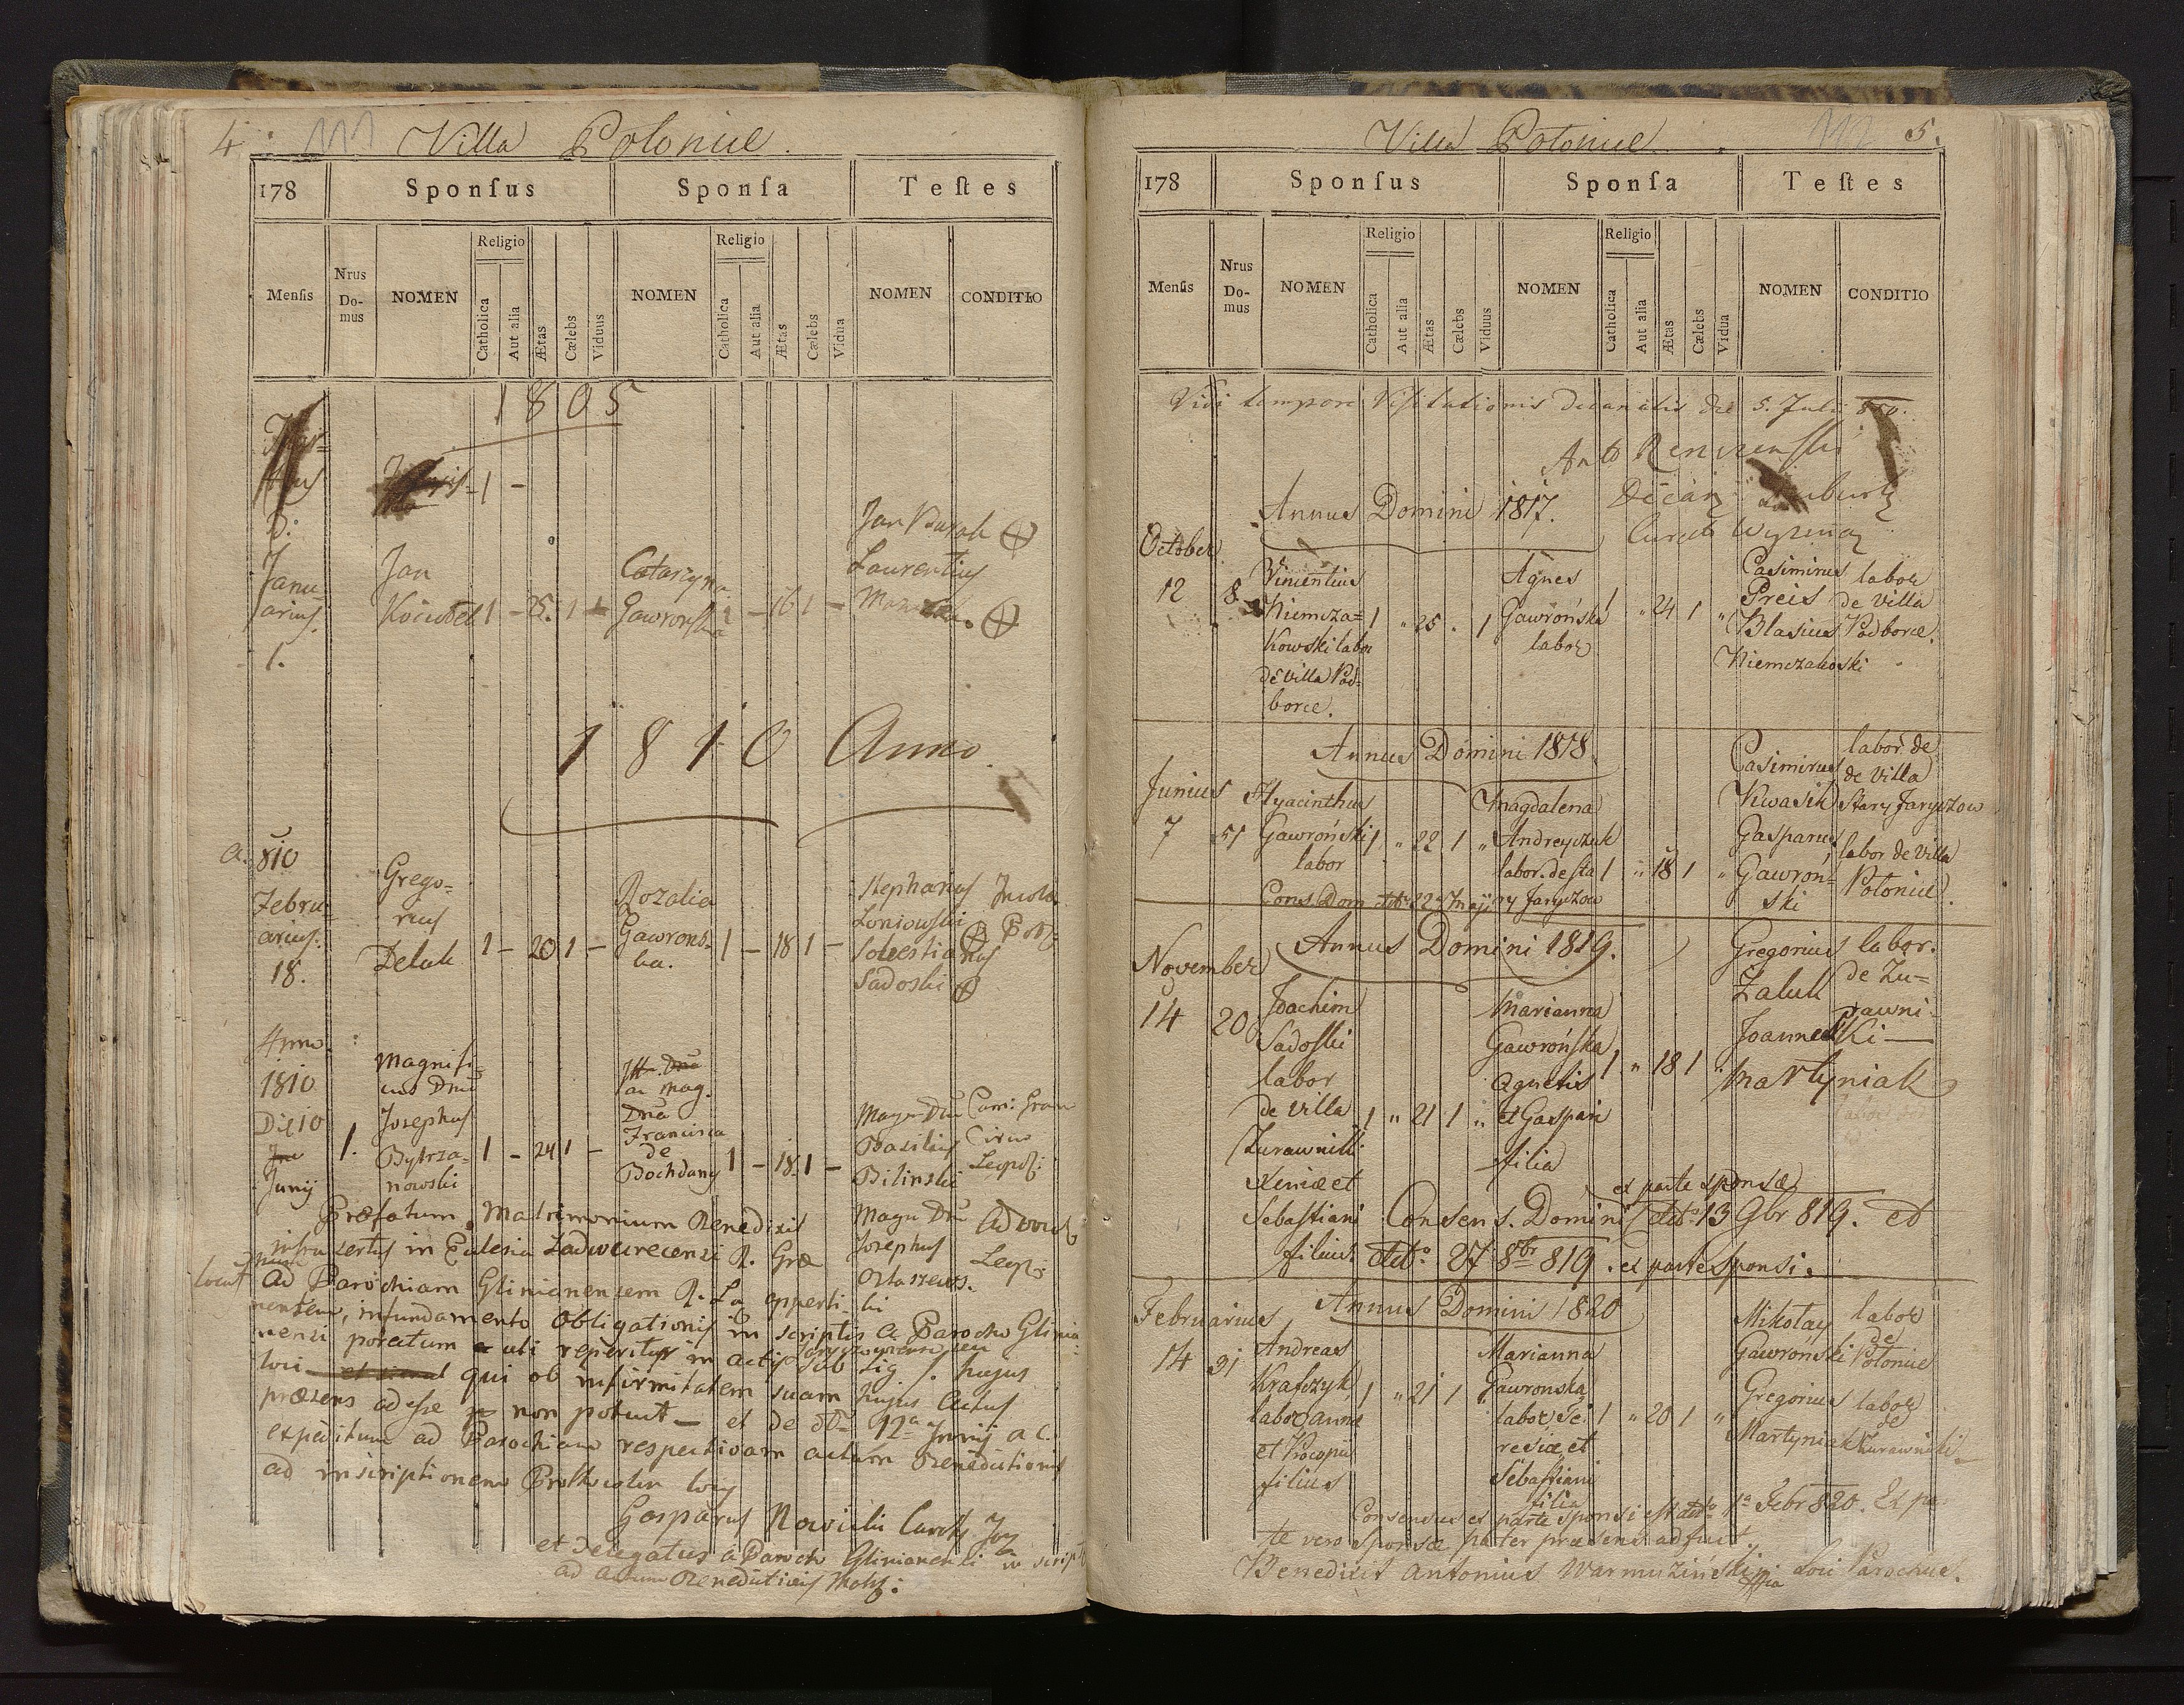 4.
111
Villa Polonice.
178
Sponſus
Sponſa
Teſtes
Menſis
Nrus Do-mus
NOMEN
Religio
Catholica
Aut alia
Ætas
Cælebs
Viduus
NOMEN
Religio
Catholica
Aut alia
Ætas
Cælebs
Vidua
NOMEN
CONDITIO
1805
Janu-
arius
1.
Jan
Kociubel
1 - 25. 1 -
Catarzyna
Gawronska
1 - 16 1 -
Jan Burak
Laurentius
1810 Anno.
a. 810
Febru-
arius
18.
Grego-
rius
Delak
1 - 20 1 -
Rozalia
Gawrons-
ka.
1 - 18 1 -
Stephanus
Loniowski
Sebestianus
Sadoski
Incola
Anno
1810
Die 10
Junij
1.
Magnifi-
cus Dnus
Josephus
Bytrza-
nowski
1 - 24 1 -
ac Mag.
Dna
Francisca
de
Bochdany
1 - 18 1 -
Magn Dnu
Basilius
Bilinski
Magn Dnu
Josephus
Ostaszews-
ki
Præfatum Matrimonium Benedixit
infrascriptus in Eclesia Zadwurecensi R. Græ
ad Parochiam Glinianensem R. L. apperti-
nentem, in fundamento obligationis in scriptis a Parocho Glinia-
nensi poratum uti reperitur in actis sub Lig f. hujus
loci qui ob infirmitatem suam hujus Actus
præsens adesse non potuit - et de dto 12a Junij a c.
expeditum ad Parochiam respectivam actum Benedictionis
ad inscriptionem Prothocolis locij
Gasparus Nowicki
et Delegatus a Parocho Glinianensi in script
ad actum Benedictionis
Villa Polonice.
112
5.
178
Sponſus
Sponſa
Teſtes
Menſis
Nrus Do-mus
NOMEN
Religio
Catholica
Aut alia
Ætas
Cælebs
Viduus
NOMEN
Religio
Catholica
Aut alia
Ætas
Cælebs
Vidua
NOMEN
CONDITIO
Vidi tempore Visitationis Decanalis die 5. Julii 810.
Annus Domini 1817.
October
12
8
Vincentius
Niemcza=
kowski labor
de villa Pod-
borce.
1 " 25 . 1
Agnes
Gawrońska
labor
1 " 24 1 "
Casimirus
Preis
Blasius
Niemczakoski
labor
de villa
Podborce.
Annus Domini 1818.
Junius
7
51
Hyacinthus
Gawroński
labor
1 " 22 1 "
Magdalena
Andreyczuk
labor. de sta
ry Jaryczow
1 " 18 1 "
Casimirus
Kwasik
Gasparus
Gawroń-
ski
labor. de
de villa
Stary Jaryczow
labor de villa
Polonice.
Cons Dom dtto 22 Maij
Annus Domini 1819.
November
14
20
Joachim
Sadoski
labor
de villa
Zurawniki
Xeniæ et
Sebastiani
filius
1 " 21 1 "
Marianna
Gawrońska
Agnetis
et Gaspari
filia
1 " 18 1 "
Gregorius
Zaluk
Joannes
Martyniak
labor.
de Zu=
rawni-
ki
ex parte sponsæ
Consens. Domini dtto 13 9br 819. et
dtto 27 8br 819. ex parte sponsi.
Annus Domini 1820
Februarius
14
31
Andreas
Krafczyk
labor Annæ
et Procopii
filius
1 " 21 1 "
Marianna
Gawronska
labor Te-
resiæ et
Sebastiani
filia
1 " 20 1 "
Mikołay
Gawroński
Gregorius
Martyniak
labor
de
Polonice
labor
de
Zurawniki
Consensus ex parte sponsi est dtto 1a Febr 820. Ex par-
te vero sponsæ pater præsens adfuit.
Benedixit Antonius Warmuziński Loci Parochus.